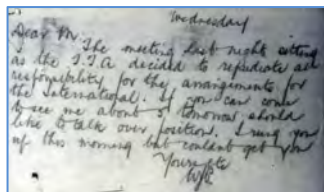 Wednesday
Dear Mr.
The meeting last night sitting
as the I.F.A decided to repudiate all
responsibility for the arrangements for
the International. If you can come
to see me about 5 tomorrow should
like to talk over position. I rung you
up this morning but couldnt get you
Yours etc